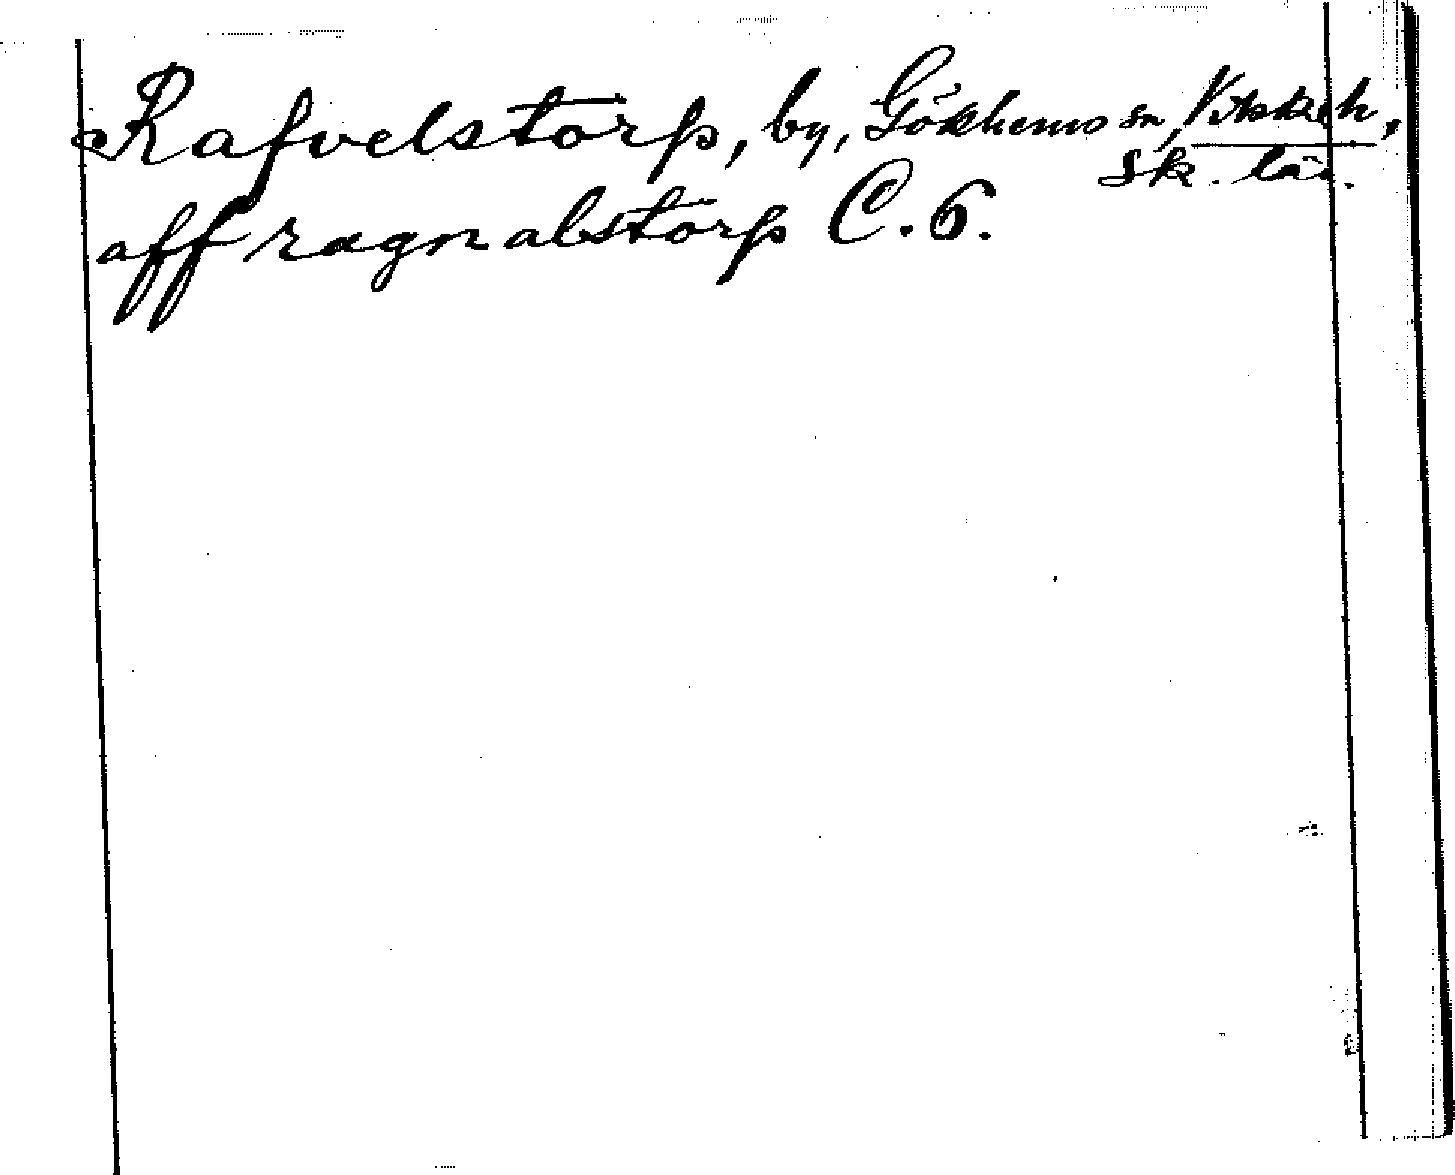 Rafvelstorp, by, Gökhems sn, Vilske h,
Sk. län.
aff ragnalstorp C. 6.